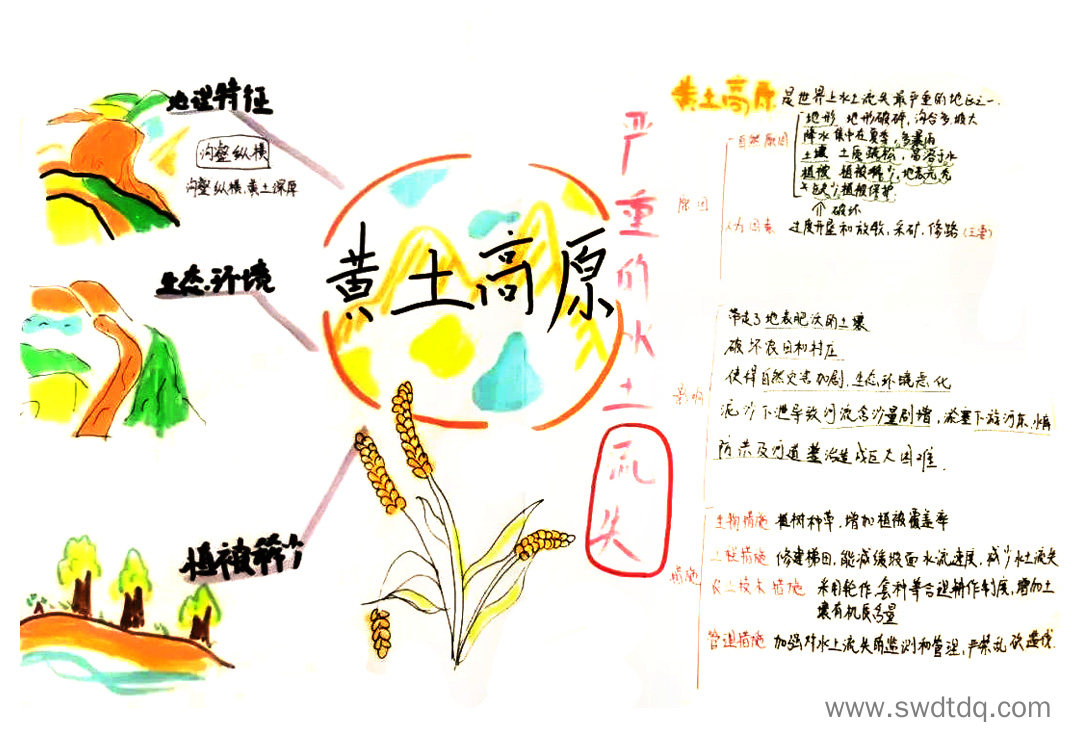 地理特征
沟壑纵横
沟壑纵横.黄土深厚
生态.环境
植被稀少
黄土高原
严重的水土流失
黄土高原是世界上水土流失最严重的地区之一.
原因
自然原因
地形 地形破碎,沟谷多坡大
降水 集中在夏季,多暴雨
土壤 土质疏松,易溶于水
植被 植被稀少,地表光秃
缺少植被保护
⇑ 破坏
人为因素 过度开垦和放牧,采矿,修路(主要)
影响
带走了地表肥沃的土壤
破坏农田和村庄
使得自然灾害加剧,生态环境恶化
泥沙下泄导致河流含沙量剧增,淤塞下游河床,
防洪及河道整治造成巨大困难.
措施
生物措施 植树种草,增加植被覆盖率
工程措施 修建梯田,能减缓坡面水流速度,减少水土流失
农业技术措施 采用轮作,套种等合理耕作制度,增加土
壤有机质含量
管理措施 加强对水土流失的监测和管理,严禁乱砍滥伐.
www.swdtdq.com